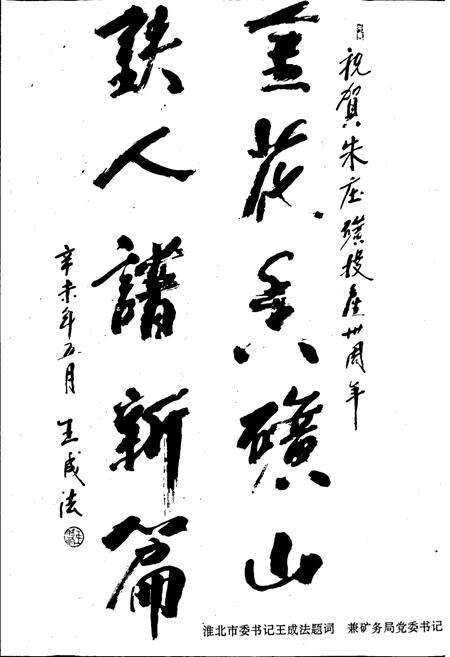 祝賀朱庄礦投産卅周年
金花香礦山
鉄人譜新篇
辛未年五月 王成法
淮北市委书记王成法题词 兼矿务局党委书记